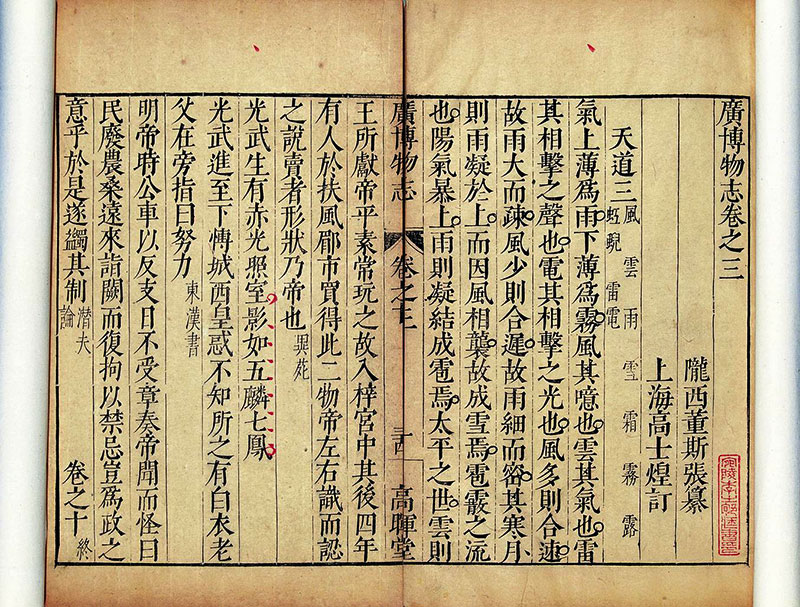 廣博物志卷之三
隴西董斯張纂
上海高士煌訂
天道三 風 雲 雨 雪 霜 霧 露
虹霓 雷電
氣上薄爲雨下薄爲霧風其噫也雲其氣也雷
其相擊之聲也電其相擊之光也風多則合速
故雨大而疎風少則合遲故雨細而密其寒月
則雨凝於上而因風相襲故成雪焉雹霰之流
也陽氣暴上雨則凝結成雹焉太平之世雲則
廣博物志 卷之 高暉堂
王所獻帝平素常玩之故入梓宮中其後四年
有人於扶風郿市買得此二物帝左右識而認
之說賣者形狀乃帝也 異苑
光武生有赤光照室影如五麟七鳳
光武進至下博城西皇惑不知所之有白衣老
父在旁指曰努力 東漢書
明帝時公車以反支日不受章奏帝聞而怪曰
民廢農桑遠來詣闕而復拘以禁忌豈爲政之
意乎於是遂蠲其制 潛夫論 卷之十 終